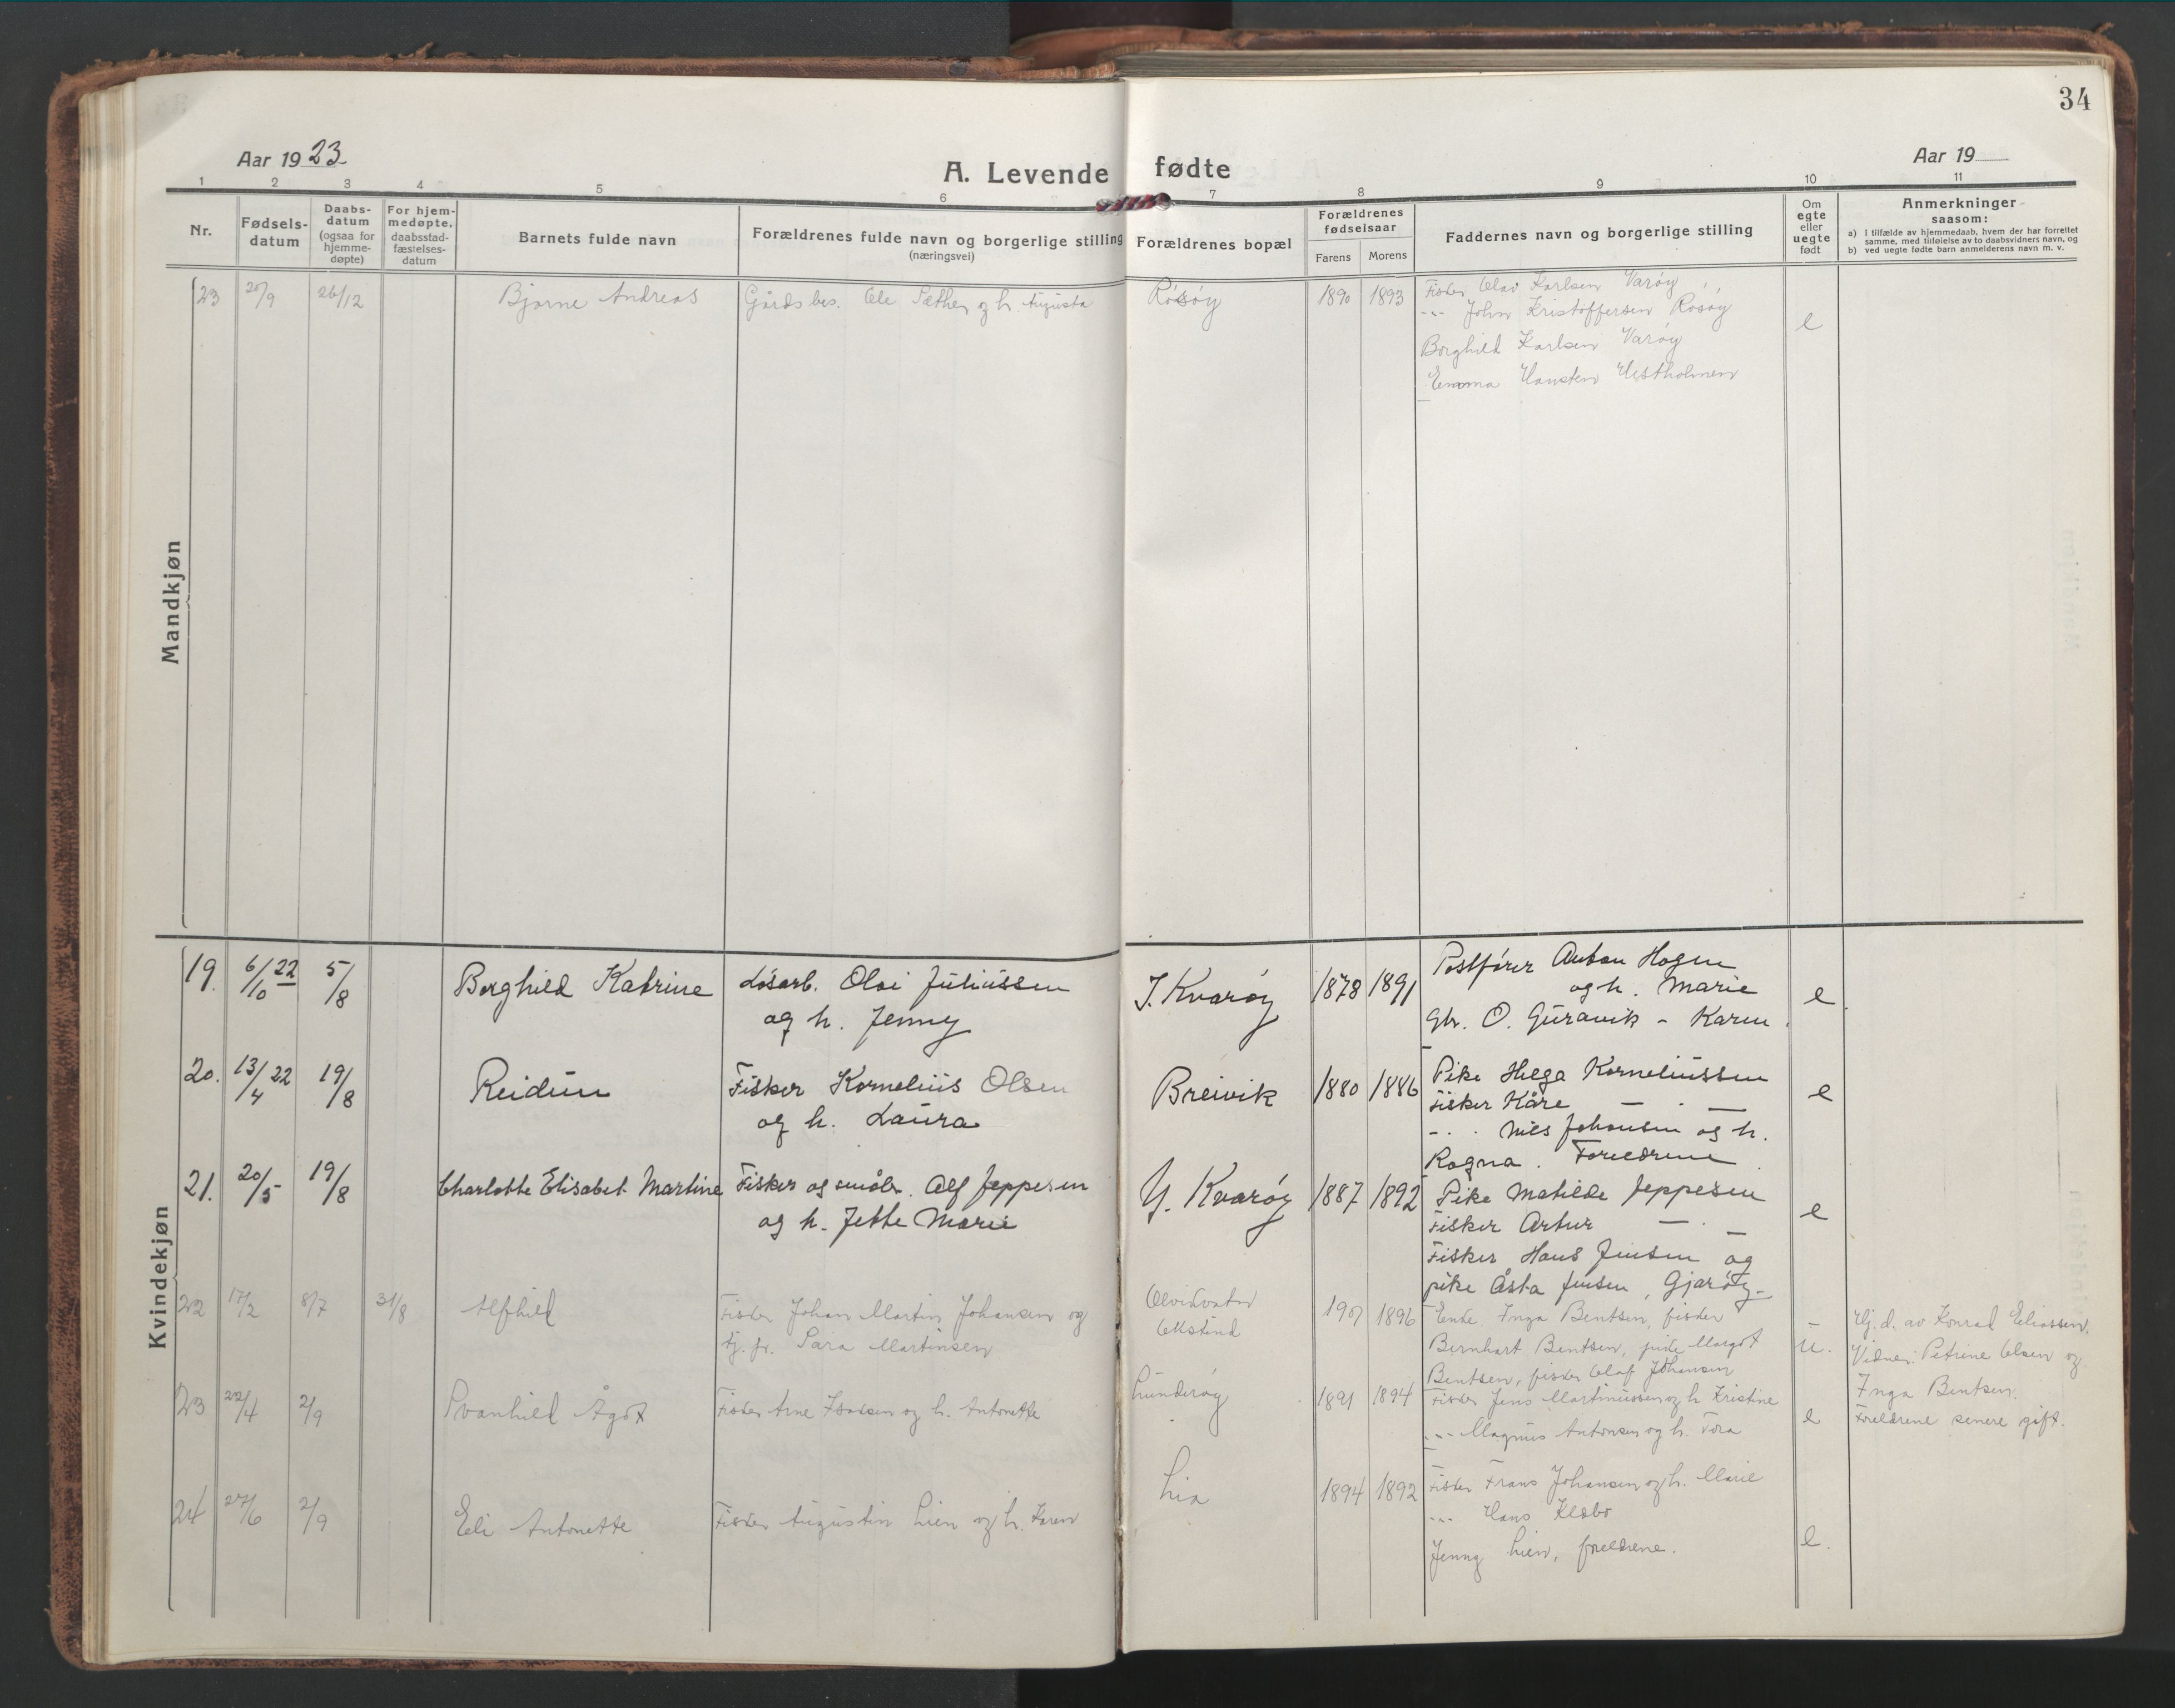 34
Aar 1923
A. Levende fødte
Aar 19
1 2 3 4 5 6 7 8 9 10 11
Nr.
Fødsels-
datum
Daabs-
datum
(ogsaa for
hjemme-
døpte)
For hjem-
medøpte,
daabsstad-
fæstelses-
datum
Barnets fulde navn
Forældrenes fulde navn og borgerlige stilling
(næringsvei)
Forældrenes bopæl
Forældrenes
fødselsaar
Farens Morens
Faddernes navn og borgerlige stilling
Om
egte
eller
uegte
født
Anmerkninger
saasom:
a) I tilfælde av hjemmedaab, hvem der har forrettet
samme, med tilføielse av to daabsvidners navn, og
b) ved uegte fødte barn anmelderens navn m. v.
Mandkjøn
23 20/9 26/12 Bjarne Andreas Gårdsbes. Ole Sæther og h. Augusta Rósóy 1890 1893 Fisker Olav Karlsen Varóy
-"- John Kristoffersen Rósóy
e
Borghild Karlsen Varóy
Emma Hansten Vestholmen
Kvindekjøn
19. 6/10 22 5/8 Borghild Katrine Lósarb. Olai Juliussen
og h. Jenny
I. Kvaróy 1878 1891 Postfórer Anton Hagen
og h. Marie
e
Gbr. O. Guravik - Karen
20. 13/4 22 19/8 Reidun Fisker Kornelius Olsen
og h. Laura
Breivik 1880 1886 Pike Helga Korneliussen
Fisker Kåre — . —
e
- . . Nils Johansen og h.
Ragna. Foreldrene
21. 20/5 19/8 Charlotte Elisabet Martine Fisker og småbr. Alf Jeppesen
og h. Jette Marie
Y. Kvaróy 1887 1892 Pike Matilde Jeppesen
Fisker Artur — . —
e
Fisker Hans Jensen og
pike Åsta Jensen, Gjaróy
22 17/2 8/7 31/8 Alfhild Fisker Johan Martin Johansen og
tj. p. Sara Martinsen
1907 1896 Enke Inga Bentsen, fisker
Bernhart Bentsen, pike Margot
Bentsen, fisker Olaf Johansen
u.
Hj. d. av Konrad Eliassen.
Vidner: Petrine Olsen og
Inga Bentsen.
Foreldrene senere gift.
23 22/4 2/9 Svanhild Ågot Fisker Arne Isaksen og h. Antonette
Lunderóy 1891 1894 Fisker Jens Martinussen og h. Kristine
-"- Magnus Antonsen og h. Tora
e
24 27/6 2/9 Eli Antonette Fisker Augustin Lien og h. Karen
Lia 1894 1892 Fisker Frans Johansen og h. Marie
-"- Hans Klæbo
Jenny Lien, foreldrene.
e.